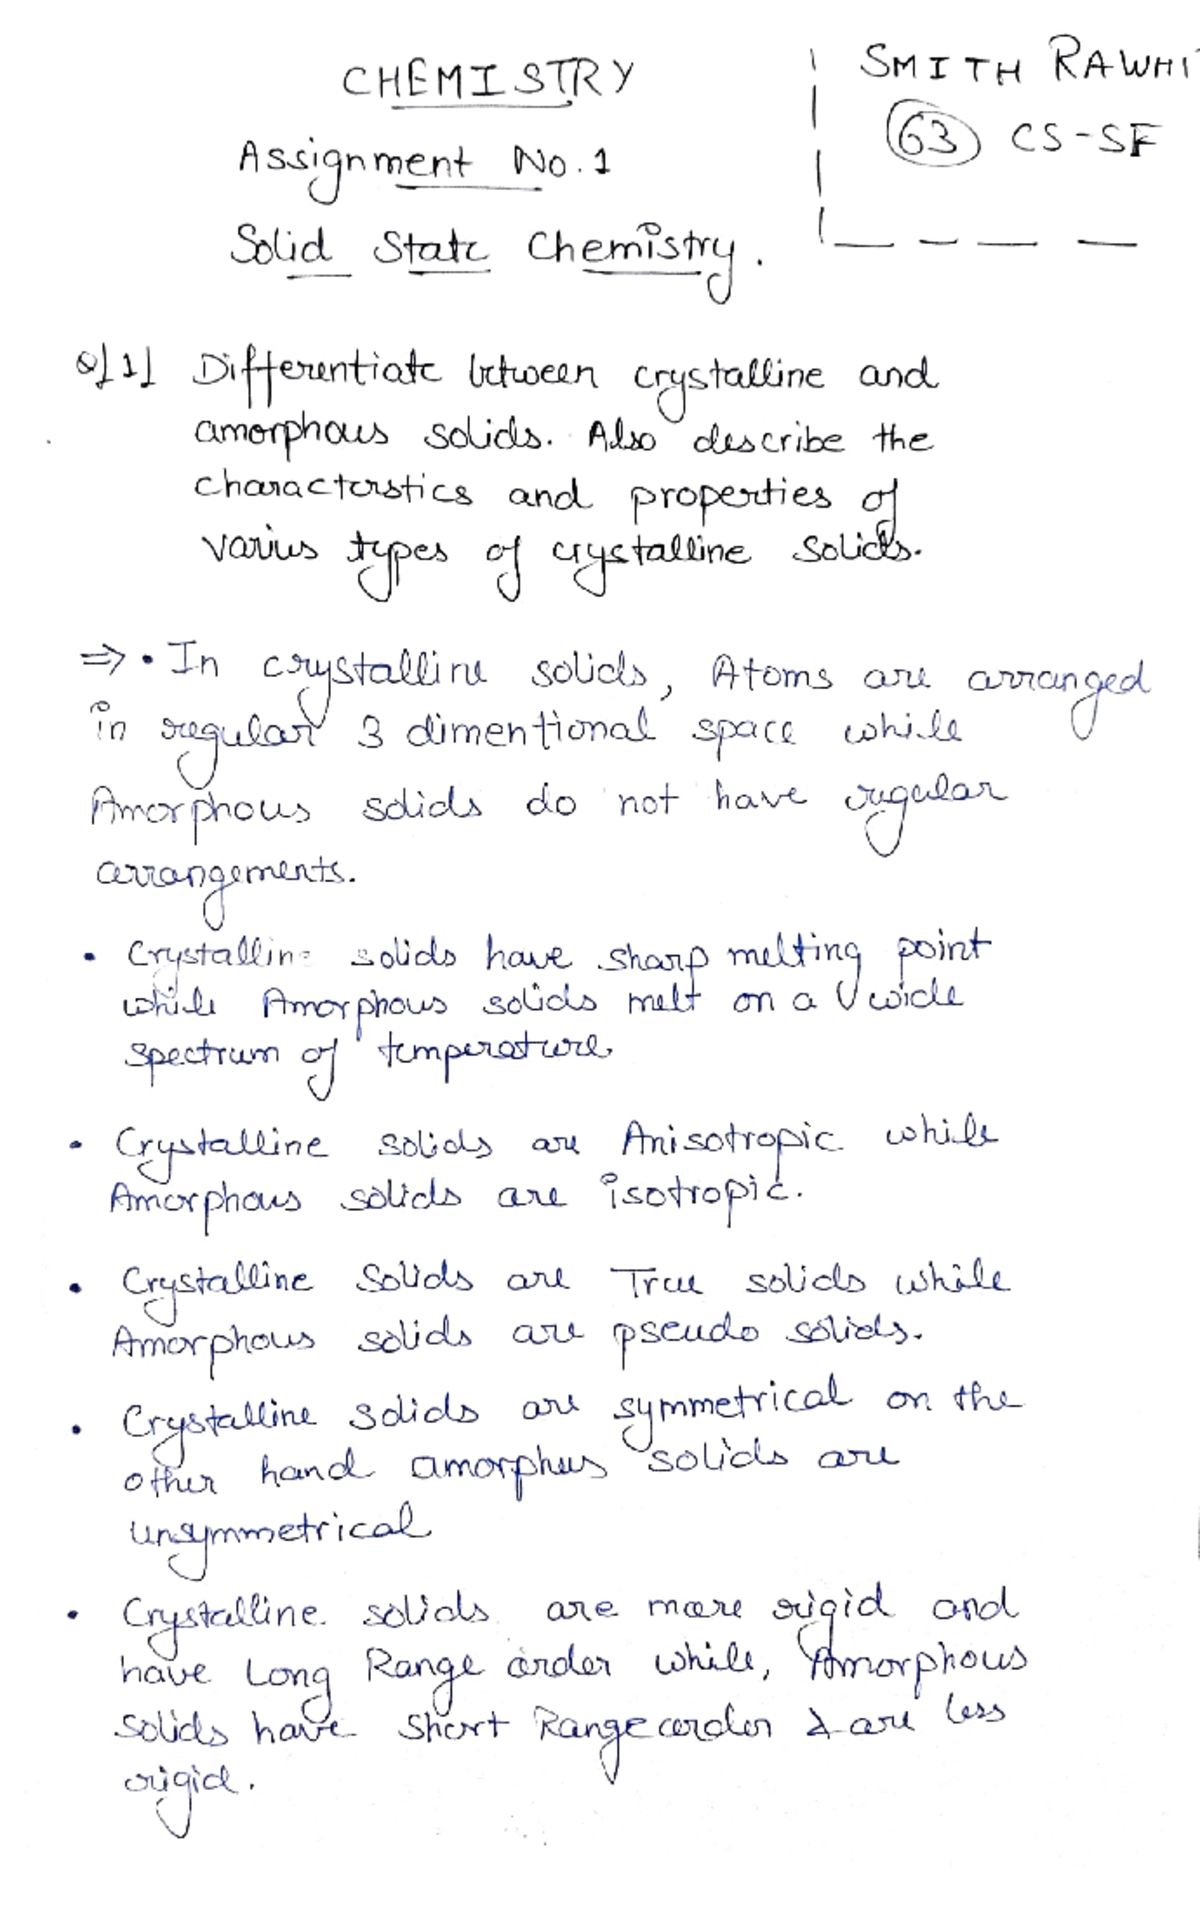 CHEMISTRY
SMITH RAWHI
63 CS-SF
Assignment No.1
Solid State Chemistry.
Q[1] Differentiate between crystalline and
amorphous solids. Also describe the
characterstics and properties of
varius types of crystalline solids.
⇒ • In crystalline solids, Atoms are arranged
in regular 3 dimentional space while
Amorphous solids do not have regular
arrangements.
• Crystalline solids have sharp melting point
while Amorphous solids melt on a wide
spectrum of temperature.
• Crystalline solids are Anisotropic while
Amorphous solids are isotropic.
• Crystalline Solids are True solids while
Amorphous solids are pseudo solids.
• Crystalline solids are symmetrical on the
other hand amorphus solids are
unsymmetrical
• Crystalline solids are more rigid and
have Long Range order while, Amorphous
solids have Short Range order & are less
rigid.